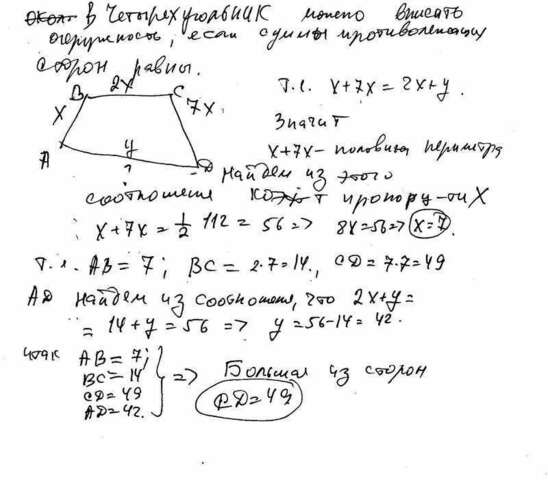 В четырехугольник можно вписать
окружность, если суммы противолежащих
сторон равны.
2x
B C
x 7x
A y D
?
Т.е. x+7x = 2x+y.
Значит
x+7x – половина периметра
Найдем из этого
соотношения пропорц-ти x
x+7x = 1/2 112 = 56 => 8x=56 => x=7.
Т.е. AB = 7; BC = 2·7=14., CD = 7·7=49
AD найдем из соотношения, что 2x+y=
= 14+y = 56 => y = 56-14 = 42.
итак AB = 7;
BC = 14
CD = 49
AD = 42.
=> Большая из сторон
CD = 49